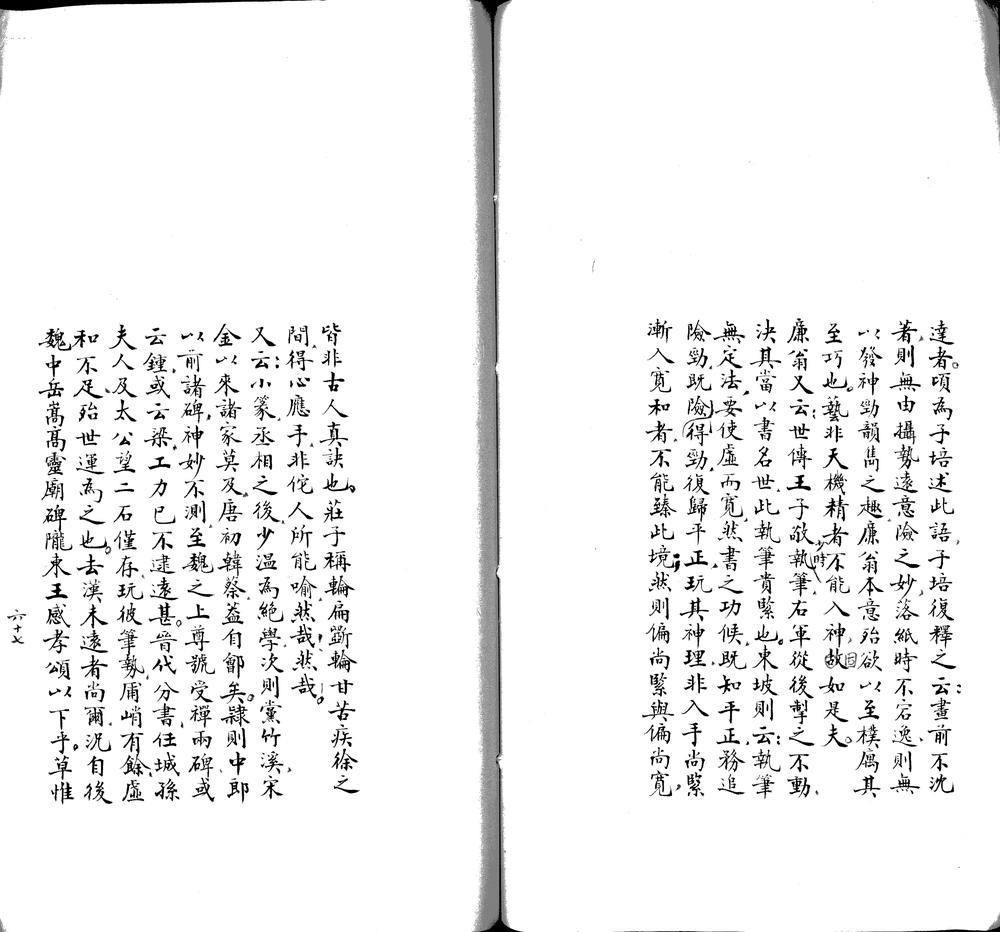 達者。頃為子培述此語,子培復釋之云:畫前不沈
著,則無由攝勢遠意險之妙,落紙時不宕逸,則無
以發神勁韻雋之趣,廉翁本意殆欲以至樸屬其
至巧也。藝非天機精者,不能入神,固如是夫。
廉翁又云:世傳王子敬少時執筆,右軍從後掣之不動,
決其當以書名世,此執筆貴緊也。東坡則云:執筆
無定法,要使虛而寬,然書之功候,既知平正,務追
險勁,既險得勁,復歸平正,玩其神理,非入手尚緊,
漸入寬和者,不能臻此境;然則偏尚緊與偏尚寬,
皆非古人真訣也。莊子稱輪扁斲輪,甘苦疾徐之
間,得心應手,非佗人所能喻,然哉,然哉。
又云:小篆丞相之後,少溫為絕學,次則黨竹溪,宋
金以來諸家莫及,唐初韓蔡,蓋自鄶矣。隸則中郎
以前諸碑,神妙不測,至魏之上尊號受禪兩碑,或
云鍾,或云梁,工力已不逮遠甚。晉代分書,任城孫
夫人及太公望二石僅存,玩彼筆勢,庸峭有餘,虛
和不足,殆世運為之也。去漢未遠者尚爾,況自後
魏中岳嵩高靈廟碑、隴東王感孝頌以下乎。草惟
六十七